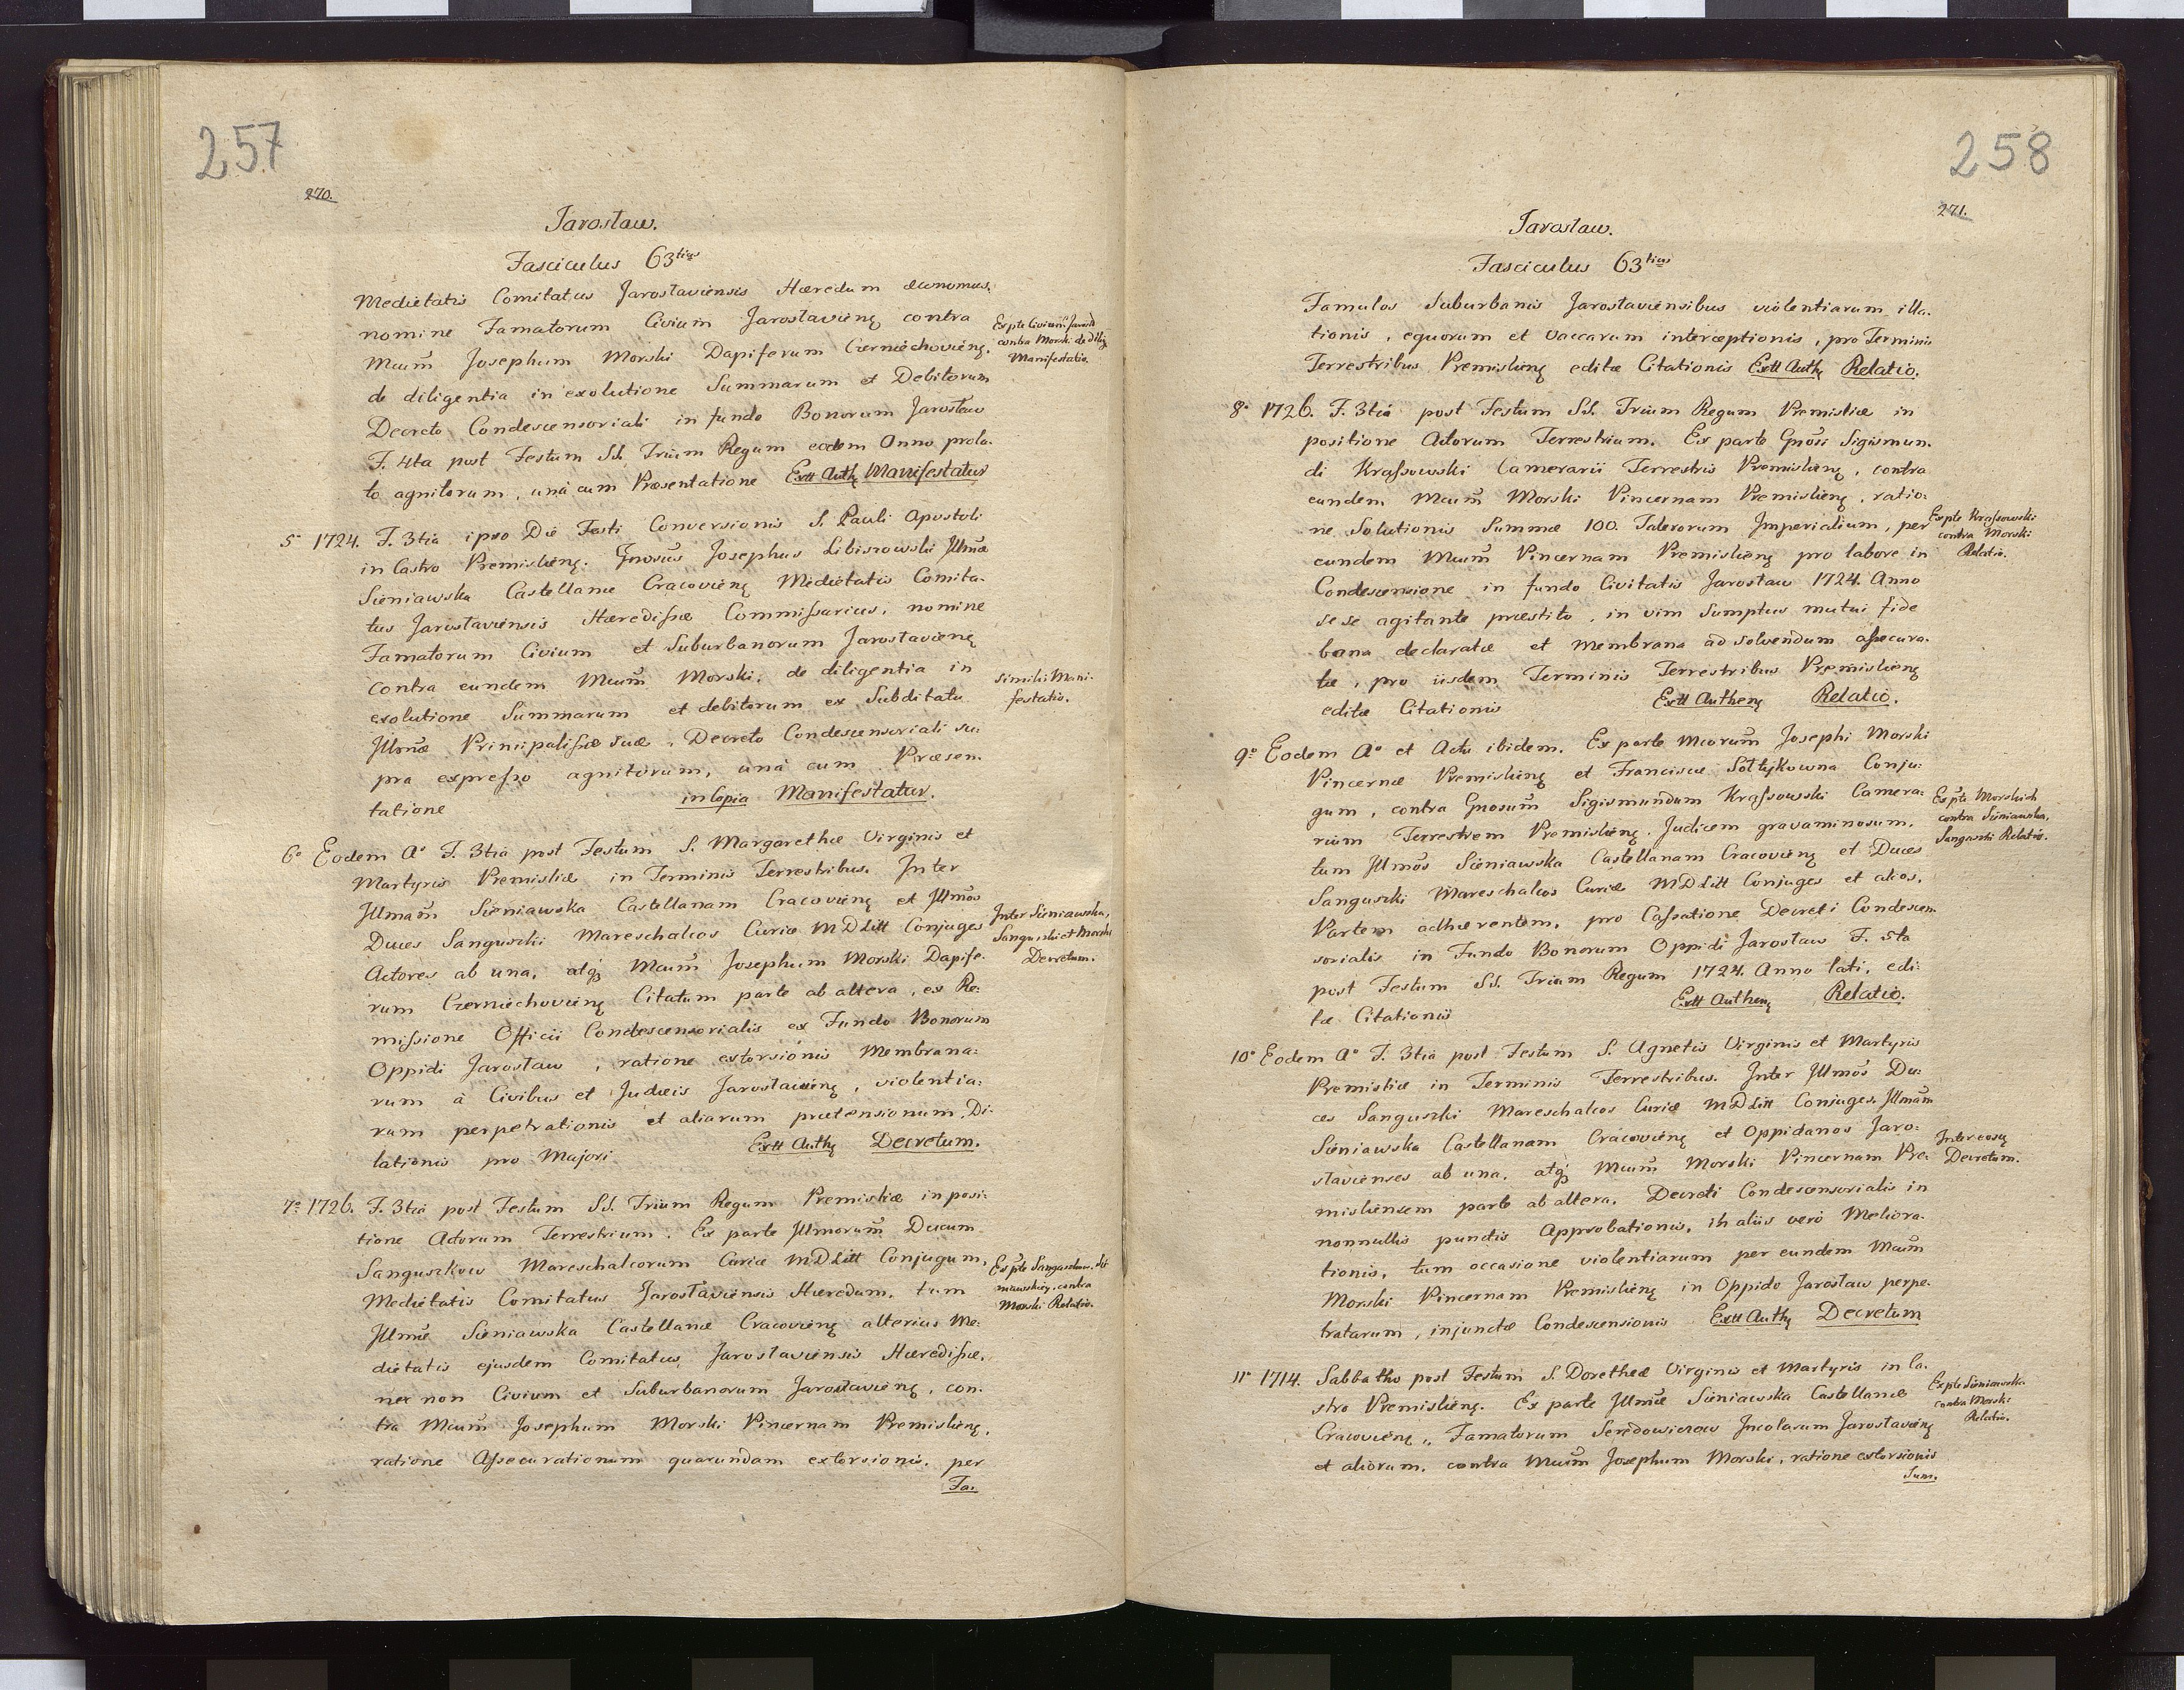 257
270.
Jarosław.
Fasciculus 63tius
Medietatis Comitatus Jaroslaviensis Hæredum œconomus,
nomine Famatorum Civium Jaroslavieng contra
Mcum̃ Josephum Morski Dapiferum Czerniechovieng.
de diligentia in exolutione Summarum et Debitorum
Decreto Condescensoriali in fundo Bonorum Jarosław
F. 4ta post Festum SS. Trium Regum eodem Anno prola-
to agnitorum, unà cum Præsentatione Extt Auth Manifestatur
Ex pte Civium Jarosl.
contra Morski de dilig.
Manifestatio.
5o 1724. F. 3tia ipso Die Festi Conversionis S. Pauli Apostoli
in Castro Premislieng. Gnosus Josephus Libiszowski Illmæ
Sieniawska Castellanæ Cracovieng Medietatis Comita-
tus Jaroslaviensis Hæredissæ Commissarius, nomine
Famatorum Civium et Suburbanorum Jaroslavieng
contra eundem Mcum̃ Morski, de diligentia in
exolutione Summarum et debitorum ex Subditatu
Illmæ Principalissæ suæ, Decreto Condescensoriali su-
pra expresso agnitorum, unà cum Præsen-
tatione in Copia Manifestatur.
Similis Mani-
festatio.
6o Eodem Ao F. 3tia post Festum S. Margarethæ Virginis et
Martyris Premisliæ in Terminis Terrestribus. Inter
Illmam̃ Sieniawska Castellanam Cracovieng et Illmos
Duces Sanguszkii Mareschalcos Curiæ MDLitt Conjuges
Actores ab una, atq Mcum̃ Josephum Morski Dapife-
rum Czerniechovieng Citatum parte ab altera, ex Re-
missione Officii Condescensorialis ex Fundo Bonorum
Oppidi Jarosław, ratione extorsionis Membrana-
rum à Civibus et Judæis Jaroslavieng, violentia-
rum perpetrationis et aliarum prætensionum, Di-
lationis pro Majori Extt Auth Decretum.
Inter Sieniawska,
Sanguszki et Morski
Decretum.
7o 1726. F. 3tia post Festum SS. Trium Regum Premisliæ in posi-
tione Actorum Terrestrium. Ex parte Illmorum̃ Ducum
Sanguszkow Mareschalcorum Curiæ MDLitt Conjugum,
Medietatis Comitatus Jaroslaviensis Hæredum, tum
Illmæ Sieniawska Castellanæ Cracovieng alterius Me-
dietatis ejusdem Comitatus Jaroslaviensis Hæredissæ,
nec non Civium et Suburbanorum Jaroslavieng, con-
tra Mcum̃ Josephum Morski Pincernam Premislieng,
ratione Assecurationum quarundam extorsionis, per
Fa.
Ex pte Sanguszkow, Sie
niawskiey contra
Morski Relatio.
258
271.
Jarosław.
Fasciculus 63tius
Famulos Suburbanis Jaroslaviensibus violentiarum illa-
tionis, equorum et vaccarum interceptionis, pro Terminis
Terrestribus Premislieng editæ Citationis Extt Auth Relatio.
8o 1726. F. 3tia post Festum SS. Trium Regum Premisliæ in
positione Actorum Terrestrium. Ex parte Gnosi Sigismun-
di Krassowski Camerarii Terrestris Premislieng, contra
eundem Mcum̃ Morski Pincernam Premislieng, ratio-
ne Solutionis Summæ 100. Talerorum Imperialium, per
eundem Mcum̃ Pincernam Premislieng pro labore in
Condescensione in fundo Civitatis Jarosław 1724. Anno
sese agitante præstito, in vim Sumptus mutui fide
bona declaratæ et Membrana ad solvendum assecura-
tæ, pro iisdem Terminis Terrestribus Premislieng
editæ Citationis Extt Autheng Relatio.
Ex pte Krassowski
contra Morski
Relatio.
9o Eodem Ao et Actu ibidem. Ex parte Mcorum̃ Josephi Morski
Pincernæ Premislieng et Franciscæ Sołtykowna Conju-
gum, contra Gnosum̃ Sigismundum Krassowski Camera-
rium Terrestrem Premislieng. Judicem gravaminosum,
tum Illmos Sieniawska Castellanam Cracovieng et Duces
Sanguszki Mareschalcos Curiæ MDLitt Conjuges et alios,
Partem adhærentem, pro Cassatione Decreti Condescen-
sorialis in Fundo Bonorum Oppidi Jarosław F. 5ta
post Festum SS. Trium Regum 1724. Anno lati, edi-
tæ Citationis Extt Autheng Relatio.
Ex pte Morskich
contra Sieniawska,
Sanguszki Relatio.
10o Eodem Ao F. 3tia post Festum S. Agnetis Virginis et Martyris
Premisliæ in Terminis Terrestribus. Inter Illmos Du-
ces Sanguszki Mareschalcos Curiæ MDLitt Conjuges. Illmam
Sieniawska Castellanam Cracovieng et Oppidanos Jaro-
slavienses ab una, atq Mcum̃ Morski Pincernam Pre-
misliensem parte ab altera. Decreti Condescensorialis in
nonnullis punctis Approbationis, in aliis verò Meliora-
tionis, tum occasione violentiarum per eundem Mcum̃
Morski Pincernam Premislieng in Oppido Jarosław perpe-
tratarum, injunctæ Condescensionis Extt Auth Decretum
Inter eosq
Decretum.
11o 1714. Sabbatho post Festum S. Dorotheæ Virginis et Martyris in Ca-
stro Premislieng. Ex parte Illmæ Sieniawska Castellanæ
Cracovieng, Famatorum Seredowiczow Incolarum Jaroslavieng
et aliorum, contra Mcum̃ Josephum Morski, ratione extorsionis
Sum.
Ex pte Sieniawska
contra Morski
Relatio.